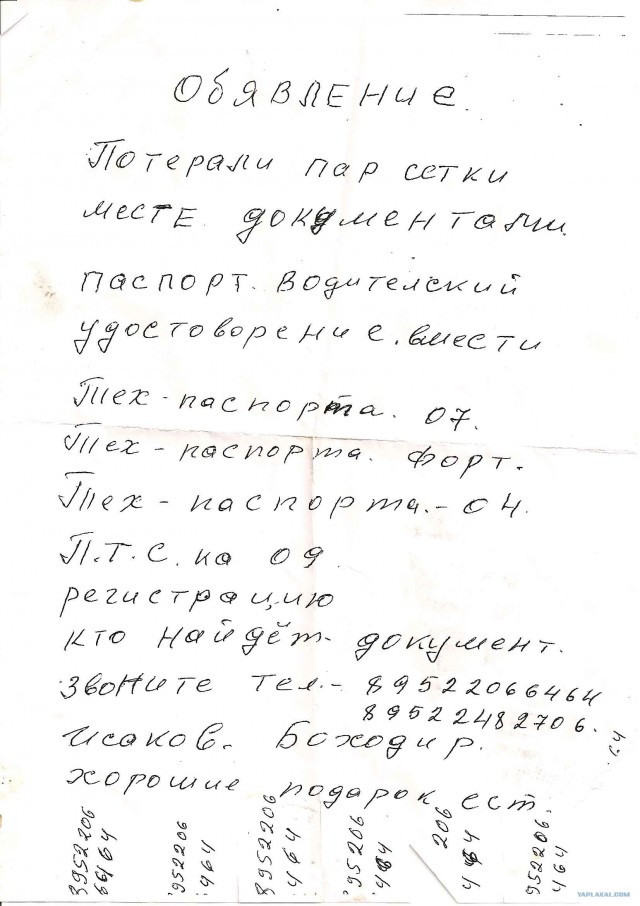 Обявление.
Потерали пар сетки
месте документами.
паспорт. Водителский
удостоворение. вмести
Тех-паспорта. 07.
Тех-паспорта. Форт.
Тех-паспорта.-04.
П.Т.С. на 09.
регистрацию
кто найдёт документ.
Звоните тел.- 89522066464
89522482706.
Исаков. Боходир.
хорошие подарок ест.
8952206
6464
952206
464
8952206
464
952206
464
206
464
952206.
464
64
YAPLAKAL.COM